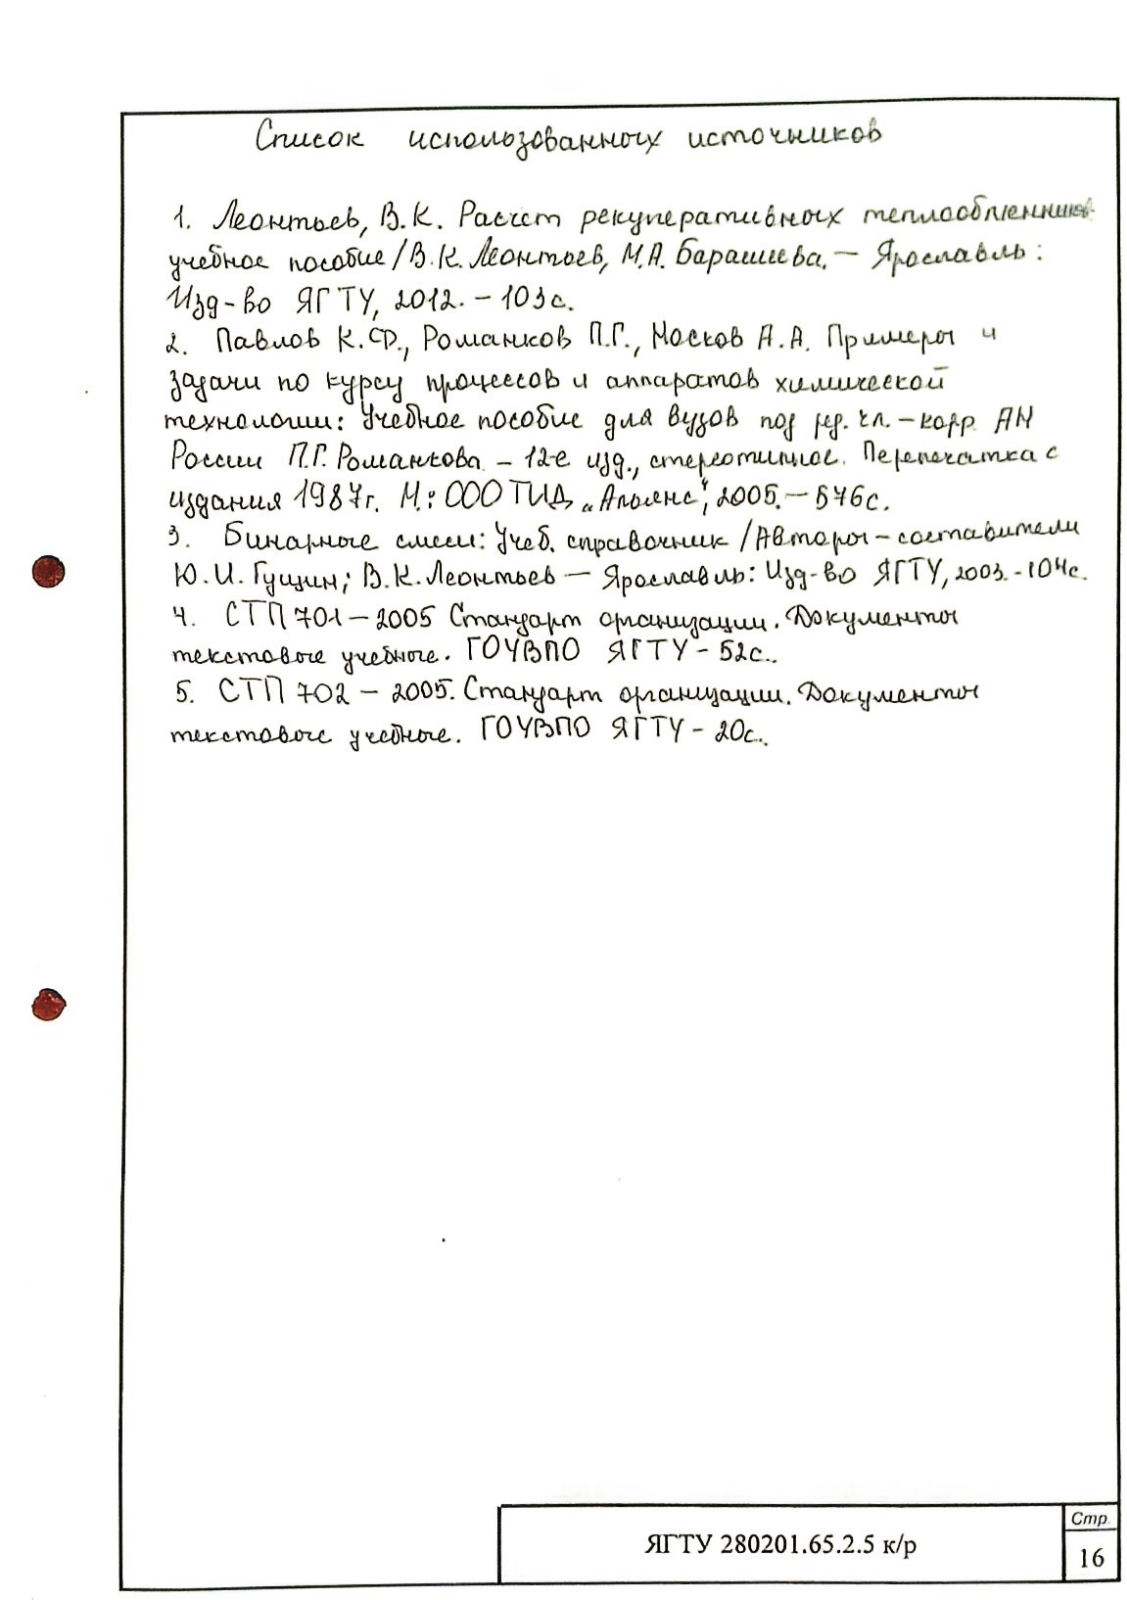 Список использованных источников
1. Леонтьев, В.К. Расчет рекуперативных теплообменников
учебное пособие/В.К. Леонтьев, М.А. Барашева. – Ярославль:
Изд-во ЯГТУ, 2012. – 103с.
2. Павлов К.Ф., Романков П.Г., Носков А.А. Примеры и
задачи по курсу процессов и аппаратов химической
технологии: Учебное пособие для вузов под ред. чл.-корр АН
России П.Г. Романкова – 12-е изд., стереотипное. Перепечатка с
издания 1987г. М.: ООО ТИД „Альянс“, 2005. – 576с.
3. Бинарные смеси: Учеб. справочник /Авторы-составители
Ю.И. Гущин; В.К. Леонтьев – Ярославль: Изд-во ЯГТУ, 2003. - 104с.
4. СТП 701 – 2005 Стандарт организации. Документы
текстовые учебные. ГОУВПО ЯГТУ - 52с..
5. СТП 702 – 2005. Стандарт организации. Документы
текстовые учебные. ГОУВПО ЯГТУ - 20с..
ЯГТУ 280201.65.2.5 к/р
Стр.
16